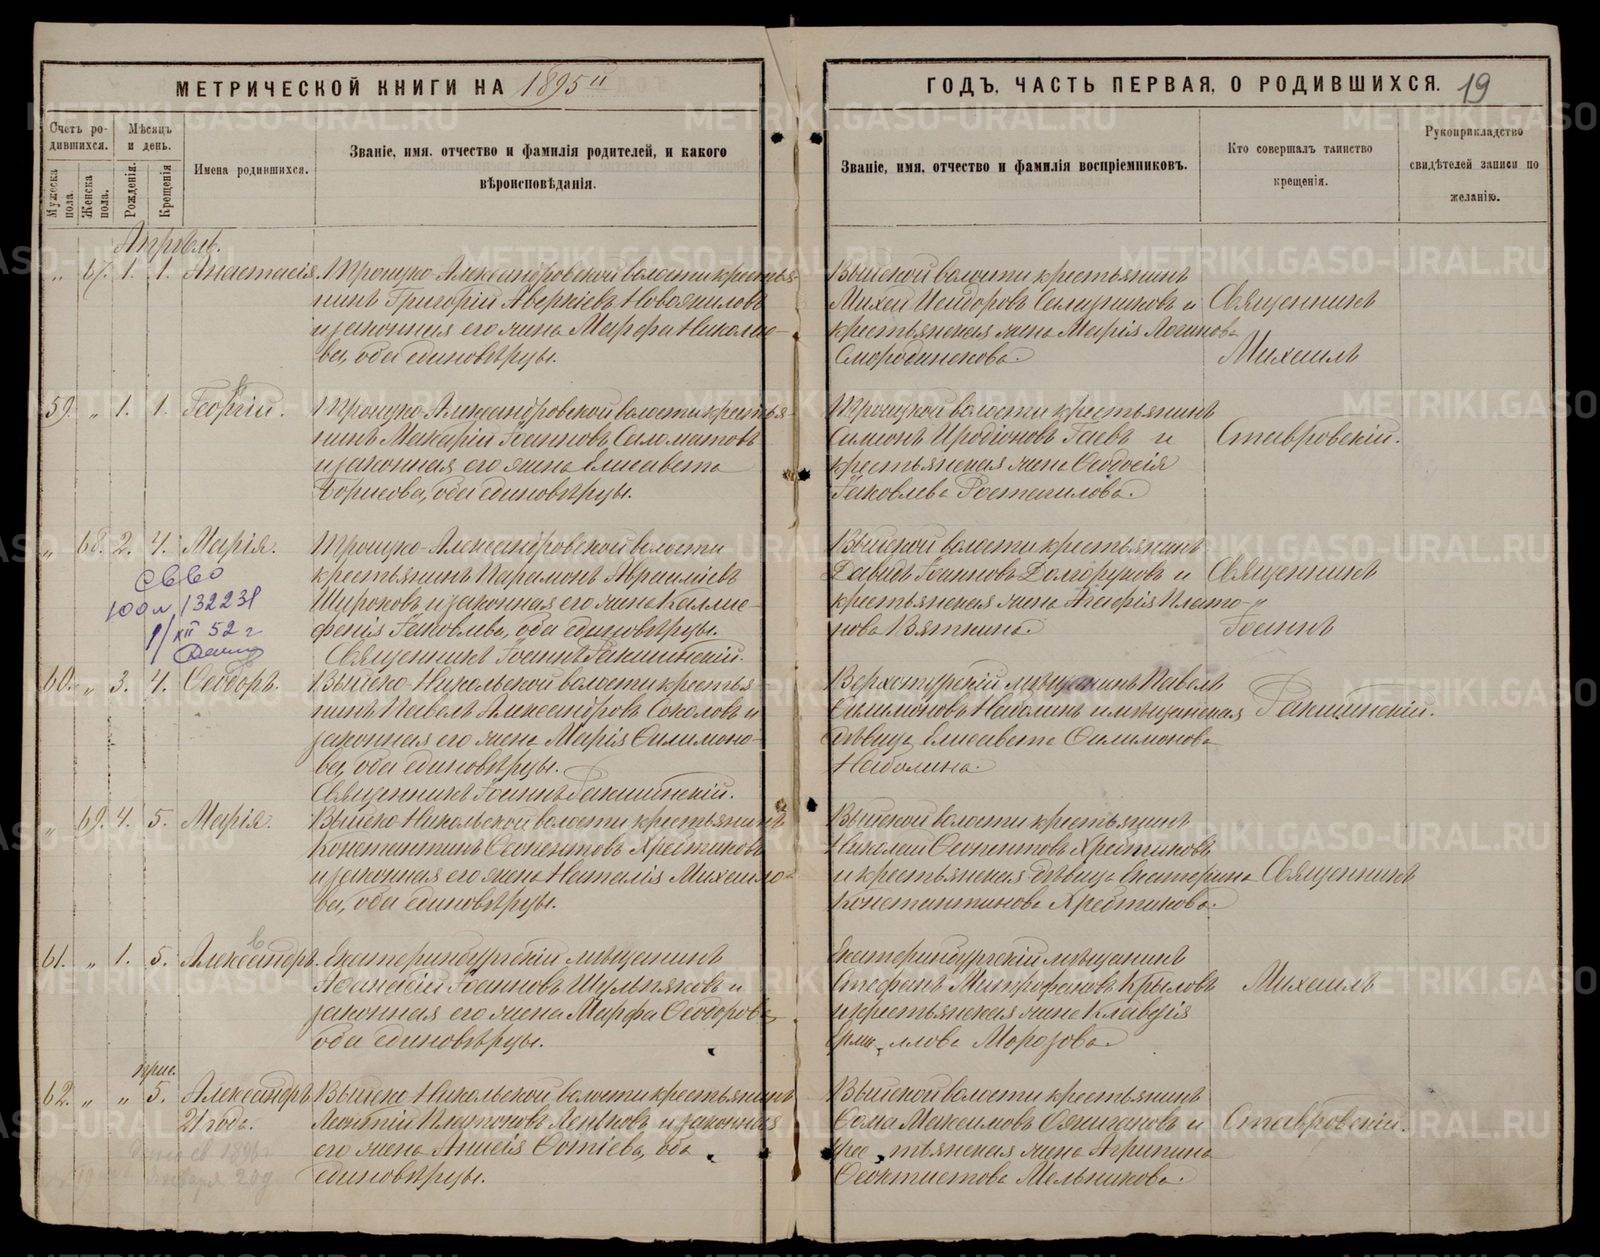 МЕТРИЧЕСКОЙ КНИГИ НА 1895й
ГОДЪ, ЧАСТЬ ПЕРВАЯ, О РОДИВШИХСЯ. 19
Счетъ ро-
дившихся.
Мужеска пола.
Женска пола.
Мѣсяцъ
и день.
Рожденія.
Крещенія
Имена родившихся.
Званіе, имя, отчество и фамилія родителей, и какого
вѣроисповѣданія.
Званіе, имя, отчество и фамилія воспріемниковъ.
Кто совершалъ таинство
крещенія.
Рукоприкладство
свидѣтелей записи по
желанію.
Апрѣль.
" 67. 1. 1. Анастасія. Троицко-Александровской волости крестья-
нинъ Григорій Аверкіевъ Новожиловъ
и законная его жена Марфа Николае-
ва, оба единовѣрцы.
Выйской волости крестьянинъ
Михей Исидоровъ и
крестьянская жена Марія
Смородинскова.
Священникъ
Михаилъ
59. " 1. 1. Георгій. Троицко-Александровской волости крестья-
нинъ Макарій Іоанновъ Саломатовъ
и законная его жена Елисавета
Борисова, оба единовѣрцы.
Троицкой волости крестьянинъ
Симеонъ Иродіоновъ Гаевъ и
крестьянская жена Ѳеодосія
Іаковлева
Ставровскій.
" 68. 2. 4. Марія. Троицко-Александровской волости
крестьянинъ Парамонъ Авраміевъ
Широковъ и законная его жена Каллис-
фенія Іаковлева, оба единовѣрцы.
Священникъ Іоаннъ Ракшинскій.
Выйской волости крестьянинъ
Давидъ Іоанновъ Долгоруковъ и
крестьянская жена Агафія Плато-
нова Вяткина.
Священникъ
Іоаннъ
132231
XII 52 г
60. " 3. 4. Ѳеодоръ. Выйско-Никольской волости крестья
нинъ Павелъ Александровъ Соколовъ и
законная его жена Марія Филимоно-
ва, оба единовѣрцы.
Священникъ Іоаннъ Ракшинскій.
Верхотурскій мѣщанинъ Павелъ
Филимоновъ Наболинъ и мѣщанская
дѣвица Елисавета Филимонова
Наболина.
Ракшинскій.
" 69. 4. 5. Марія. Выйско-Никольской волости крестьянинъ
Константинъ Ѳеопентовъ Хрептиковъ
и законная его жена Наталія Михаило-
ва, оба единовѣрцы.
Выйской волости крестьянинъ
Николай Ѳеопентовъ Хрептиковъ
и крестьянская дѣвица Екатерина
Константинова Хрептикова.
Священникъ
61. " 1. 5. Александръ. Екатеринбургскій мѣщанинъ
Аѳанасій Іоанновъ Шульпяковъ и
законная его жена Марфа Ѳеодорова
оба единовѣрцы.
Екатеринбургскій мѣщанинъ
Стефанъ Митрофановъ Крыловъ
и крестьянская жена Клавдія
Морозова.
Михаилъ
прис.
62. " " 5. Александръ Выйско-Никольской волости крестьянинъ
21 года.
Леонтій Платоновъ Леньковъ и законная
его жена Анисія Фотіева, оба
единовѣрцы.
Выйской волости крестьянинъ
Ѳома Максимовъ Ожигановъ и
крестьянская жена Агрипина
Ѳеоктистова Мельникова.
Ставровскій.
METRIKI.GASO-URAL.RU